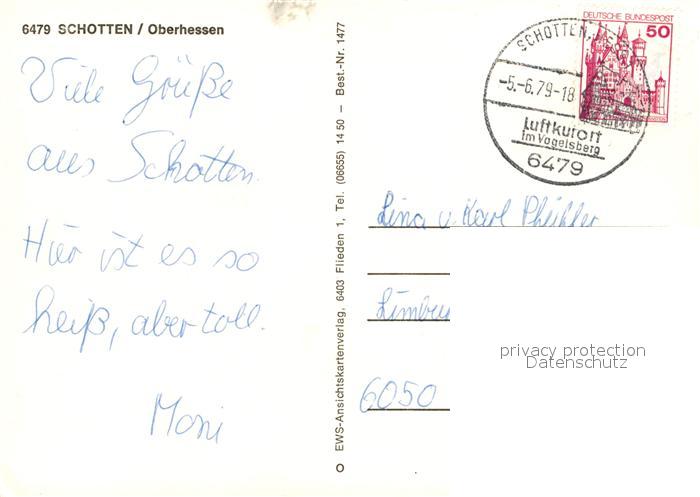 6479 SCHOTTEN / Oberhessen
Viele Grüße
aus Schotten.
Hier ist es so
heiß, aber toll.
Moni
EWS-Ansichtskartenverlag, 6403 Flieden 1, Tel. (06655) 14 50 — Best.-Nr. 1477
DEUTSCHE BUNDESPOST
50
SCHOTTEN
-5.-6.79-18
Luftkurort
im Vogelsberg
6479
Lina u. Karl
6050
privacy protection
Datenschutz